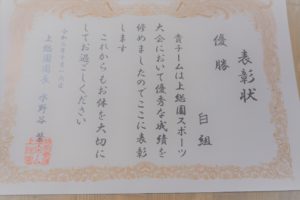 表彰状
優勝
白組
貴チームは上総園スポーツ
大会において優秀な成績を
修めましたのでここに表彰
します
これからもお体を大切に
してお過ごしください
上総園園長 水野谷